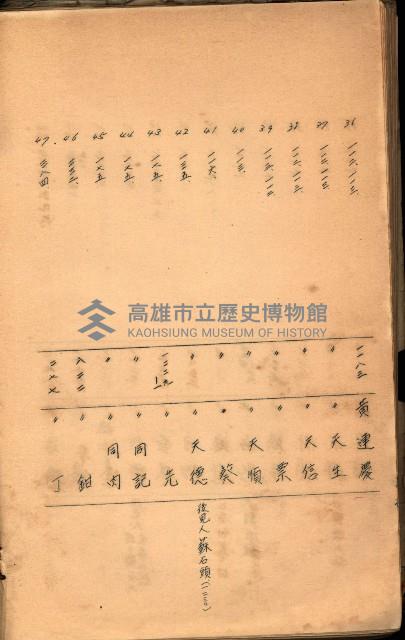 36 一一六、一一三、 一一八三 黄連慶
37 一一二、一一三、 〃 〃 天生
38 一一二、一一三、 〃 〃 天信
39 一一二、一一三 〃 〃 票
40 一一三、 〃 〃 天順
41 一一六、 〃 〃 葵
42 一三五、 〃 〃 天德 後見人 蘇石頭
43 一八五、 〃 先
44 一七五、 〃 〃 同記
45 一七五、 〃 〃 同肉
46 三三三、 八三三 〃 鉗
47 三八四 二七七 〃 丁
高雄市立歷史博物館
KAOHSIUNG MUSEUM OF HISTORY